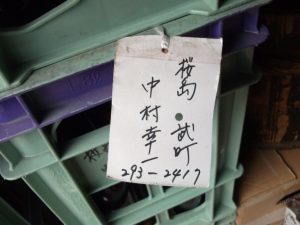 桜島 武町
中村幸一
293-2417